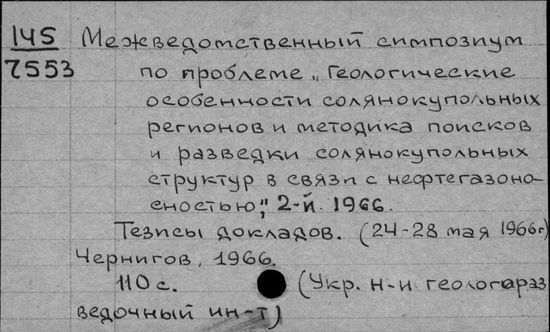 145 Межведомственный симпозиум
7553 по проблеме „Геологические
особенности солянокупольных
регионов и методика поисков
и разведки солянокупольных
структур в связи с нефтегазоно-
сностью", 2-й. 1966.
Тезисы докладов. (24-28 мая 1966г)
Чернигов, 1966.
110 с. (Укр. н-и геологораз
ведочный ин-т)